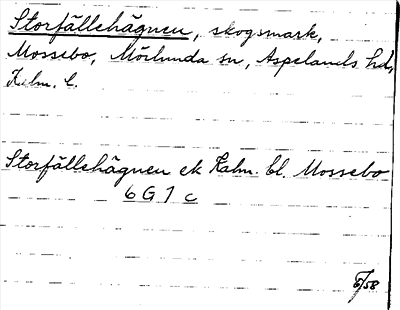 Storfällehägnen, skogsmark,
Mossebo, Mörlunda sn, Aspelands hd,
Kalm. l.
Storfällehägnen ek Kalm. bl. Mossebo
6 G 7 c
5/58